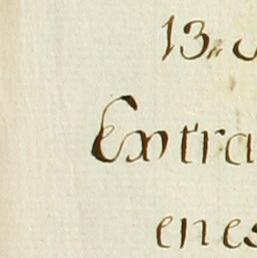 13.
Extra
en es